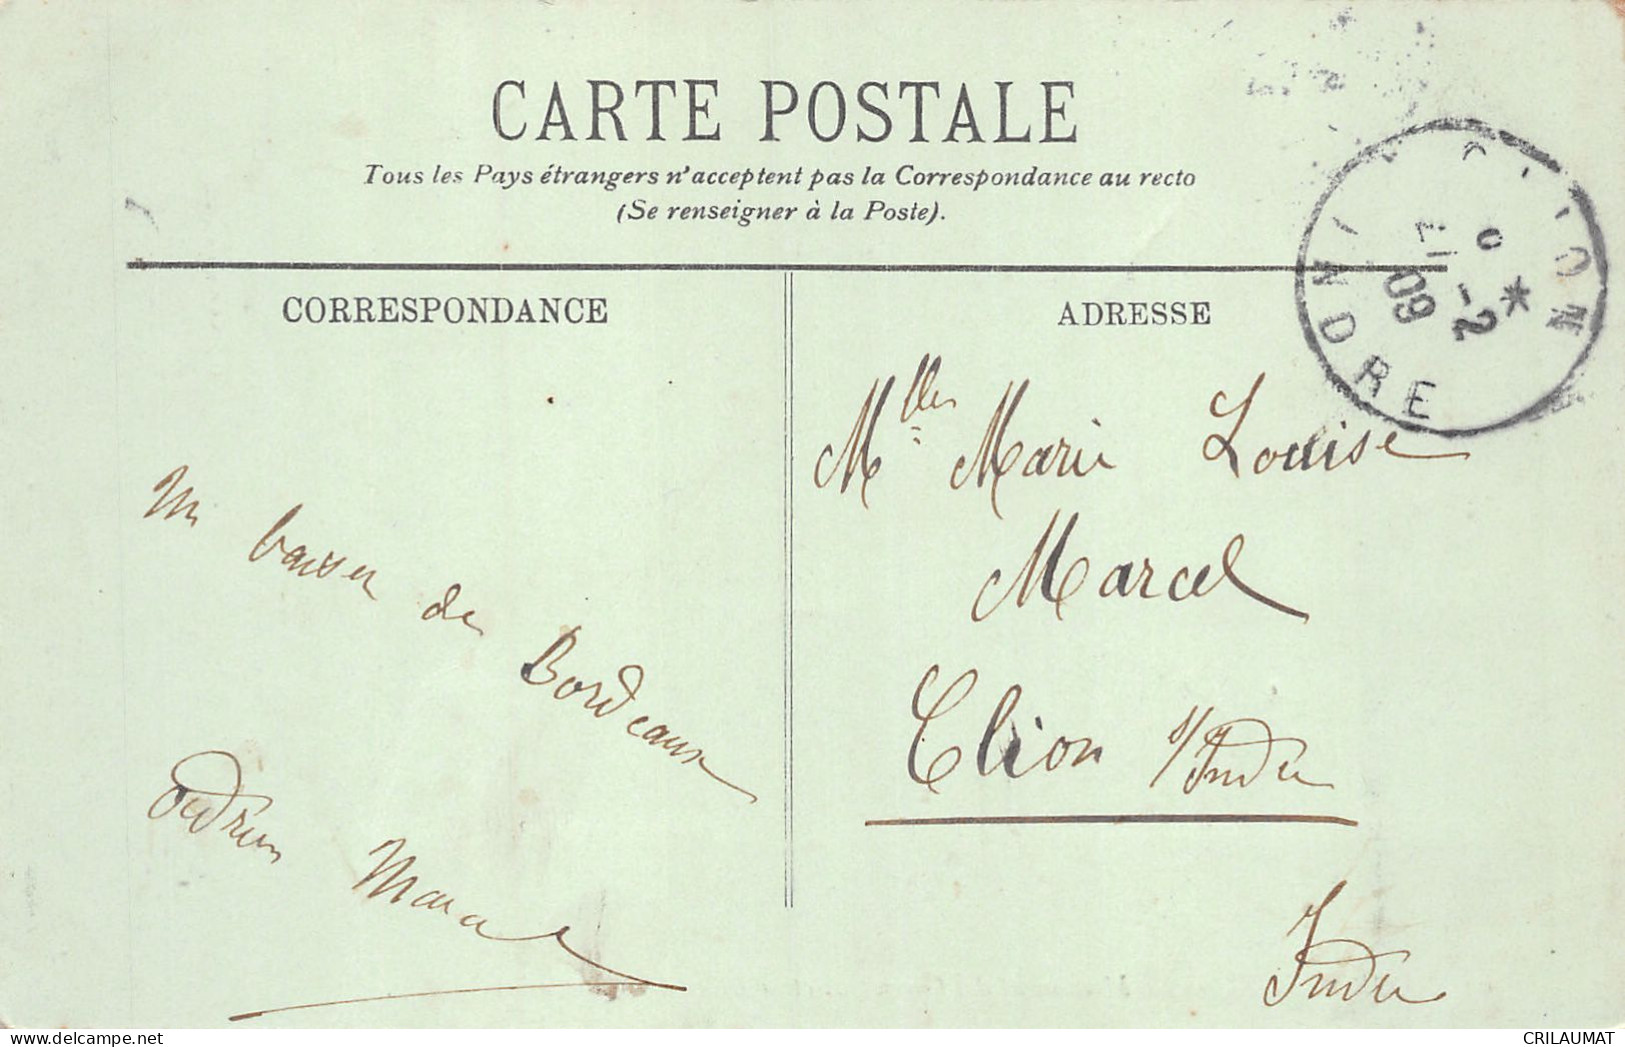 CARTE POSTALE
Tous les Pays étrangers n'acceptent pas la Correspondance au recto
(Se renseigner à la Poste).
CORRESPONDANCE
ADRESSE
Un baiser de Bordeaux
Marcel
Mlles Marie Louise
Marcel
Clion s/Indre
Indre
INDRE
-2
09
CRILAUMAT